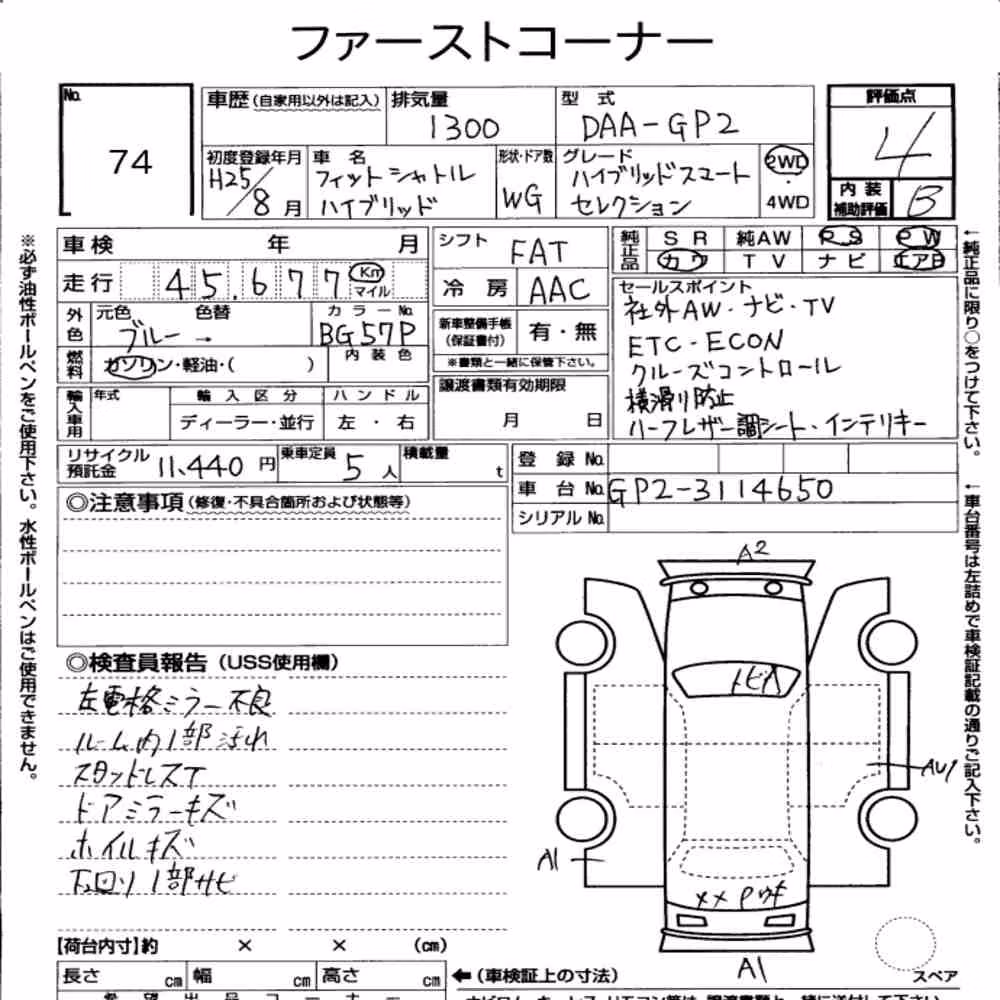 ファーストコーナー
No. 74
車歴(自家用以外は記入) 排気量 1300 型式 DAA-GP2 評価点 4
初度登録年月 H25/8月 車名 フィットシャトルハイブリッド 形状・ドア数 WG グレード ハイブリッドスマートセレクション 2WD・4WD 内装補助評価 B
車検 年 月 シフト FAT 純正品 SR 純AW PS PW
走行 45.677 Km マイル 冷房 AAC カワ TV ナビ エアB
外色 元色 ブルー → 色替 カラーNo. BG57P 新車整備手帳(保証書付) 有・無
※書類と一緒に保管下さい。
燃料 ガソリン・軽油・( ) 内装色
セールスポイント
社外AW・ナビ・TV
ETC・ECON
クルーズコントロール
横滑り防止
ハーフレザー調シート・インテリキー
輸入車用 年式 輸入区分 ディーラー・並行 ハンドル 左・右 譲渡書類有効期限 月 日
リサイクル預託金 11,440円 乗車定員 5人 積載量 t
登録No.
車台No. GP2-3114650
シリアルNo.
◎注意事項(修復・不具合箇所および状態等)
◎検査員報告(USS使用欄)
左電格ミラー不良
ルーム内1部汚れ
スタッドレスT
ドアミラーキズ
ホイルキズ
下回り1部サビ
A2
トビA
AU1
A1
××Pウキ
A1
スペア
【荷台内寸】約 × × (cm)
長さ cm 幅 cm 高さ cm ←(車検証上の寸法)
※必ず油性ボールペンをご使用下さい。水性ボールペンはご使用できません。
←純正品に限り○をつけて下さい。
←車台番号は左詰めで車検証記載の通りご記入下さい。